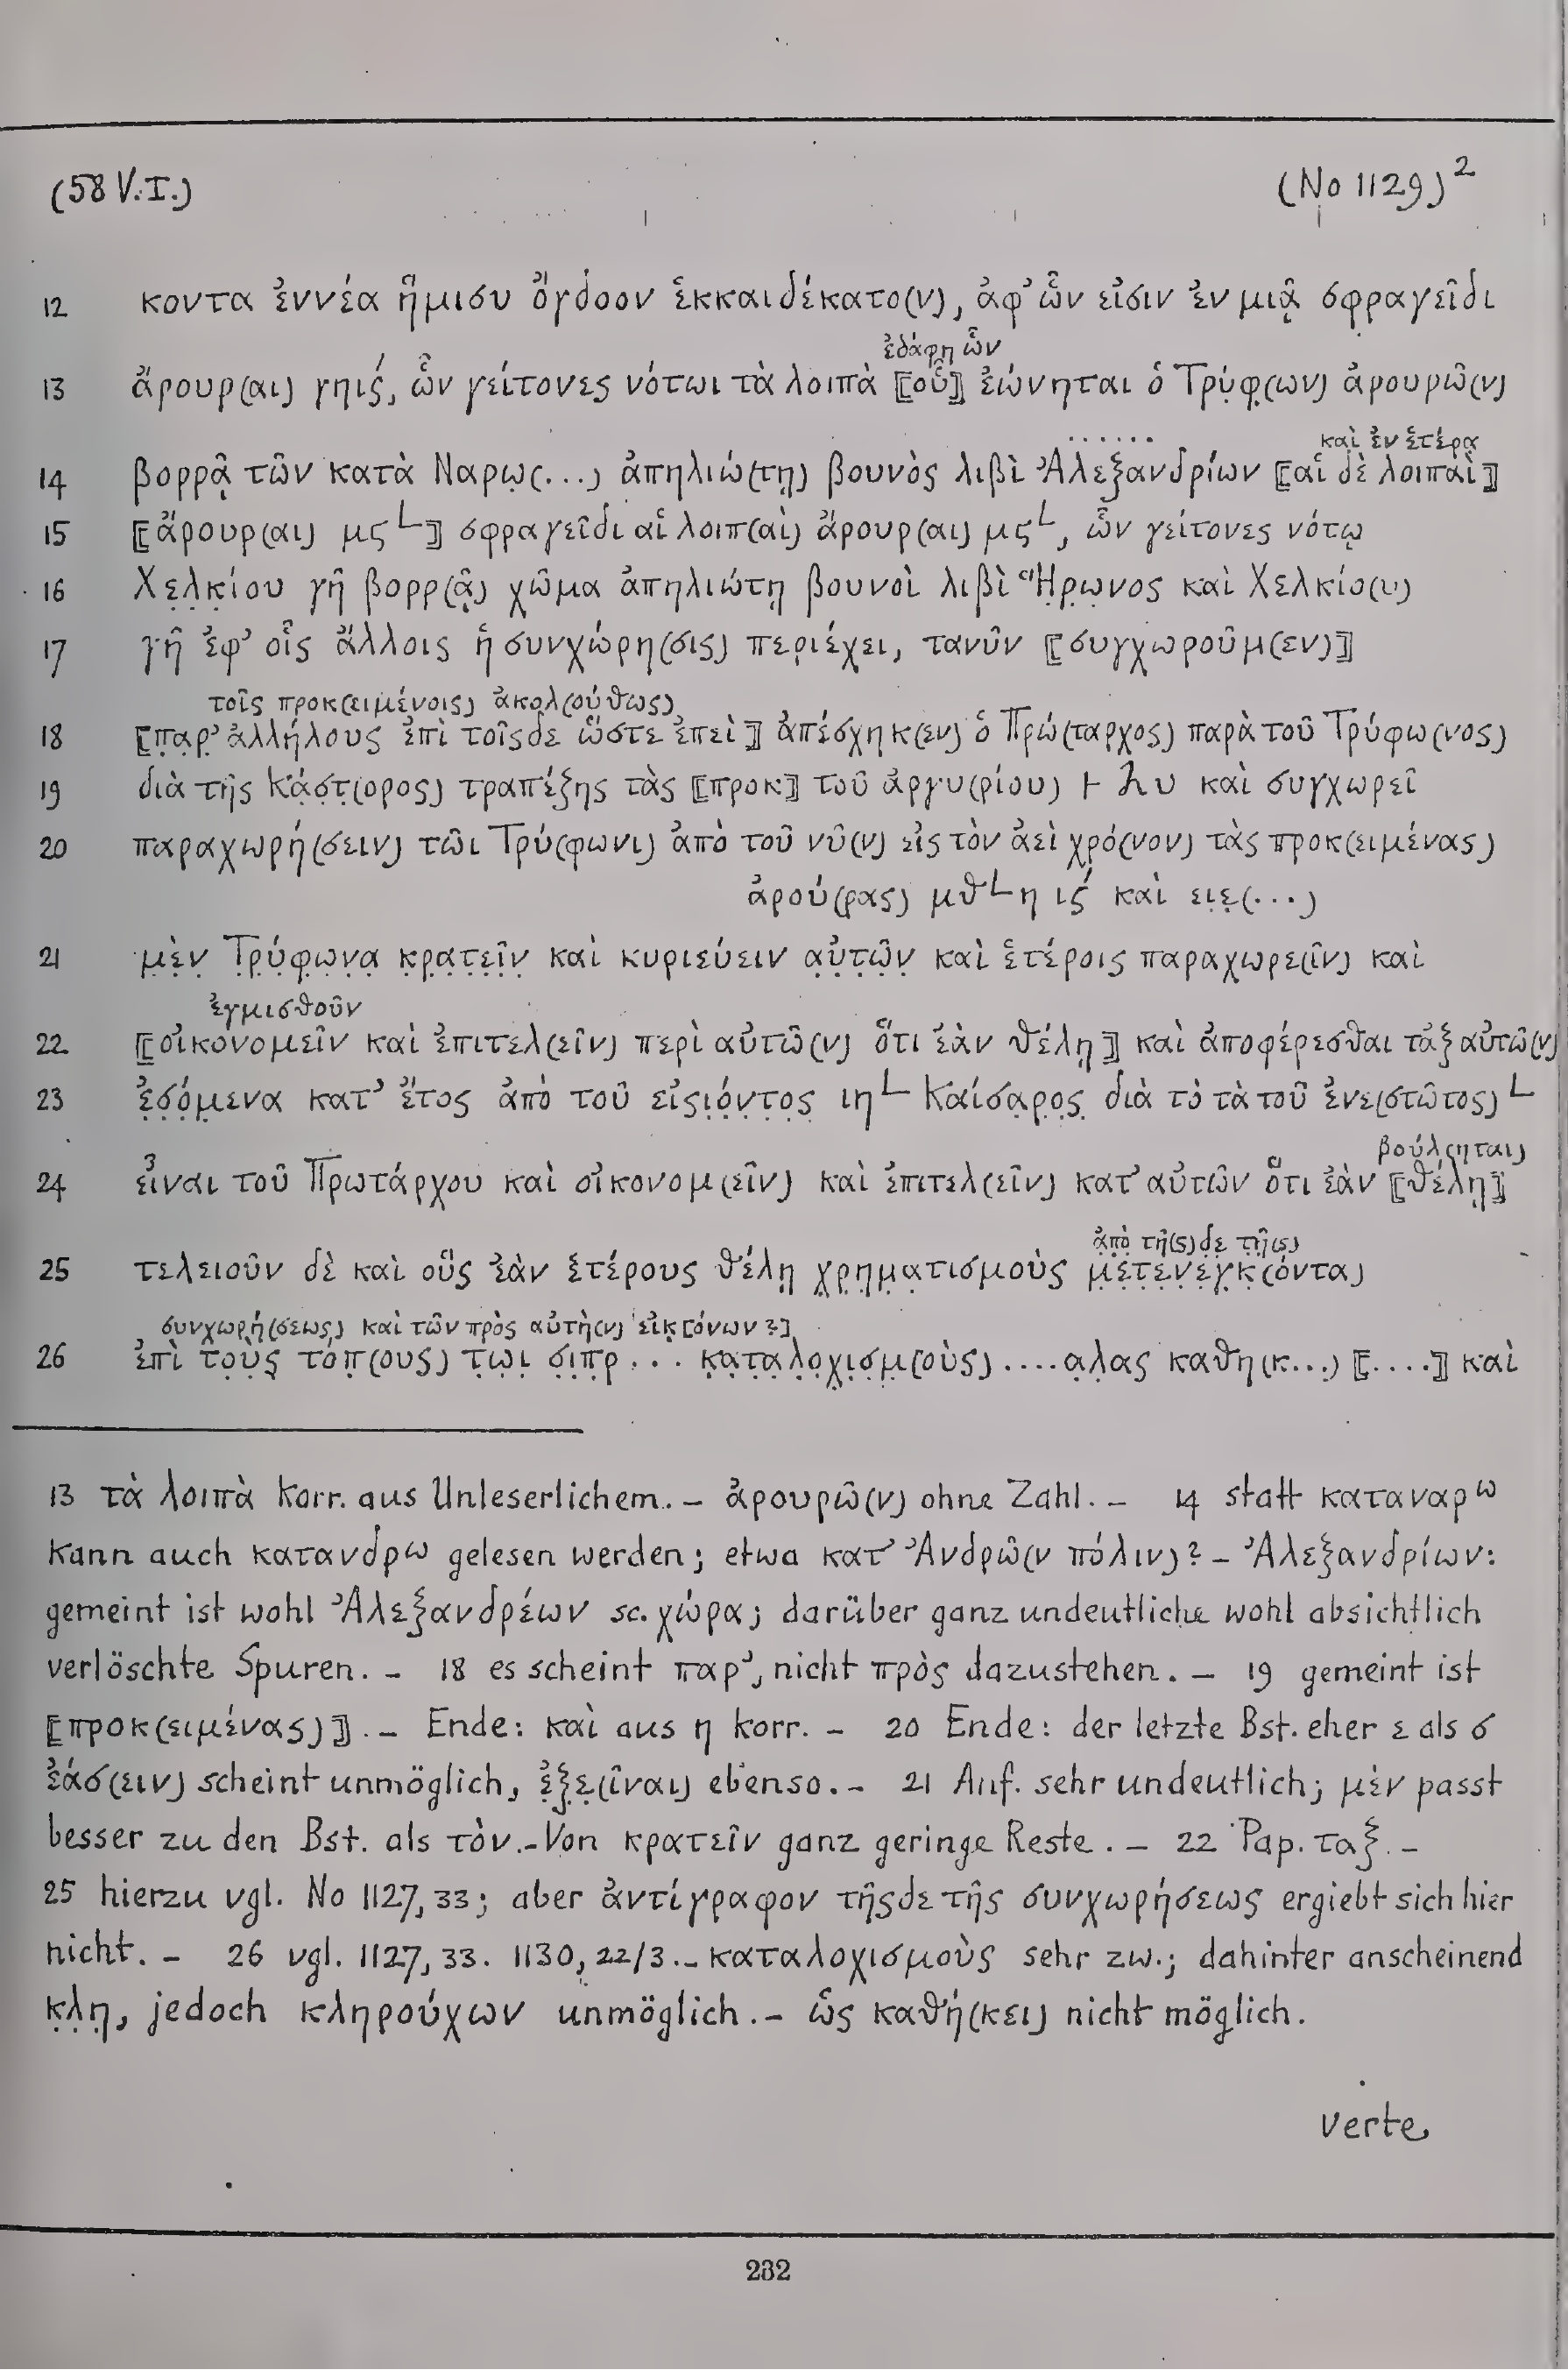 (58 V.I.) (No 1129)²
12 κοντα ἐννέα ἥμισυ ὄγδοον ἑκκαιδέκατο(ν), ἀφ’ ὧν εἰσιν ἐν μιᾷ σφραγεῖδι
ἐδάφη ὧν
13 ἄρουρ(αι) γηιϛ́, ὧν γείτονες νότωι τὰ λοιπὰ ⟦οὗ⟧ ἐώνηται ὁ Τρύφ̣(ων) ἀρουρῶ(ν)
...... καὶ ἐν ἑτέρα
14 βορρᾷ τῶν κατὰ Ναρω̣(...) ἀπηλιώ(τῃ) βουνὸς λιβὶ Ἀλεξανδρίων ⟦αἱ δὲ λοιπαὶ⟧
15 ⟦ἄρουρ(αι) μϛ└⟧ σφραγεῖδι αἱ λοιπ(αὶ) ἄρουρ(αι) μϛ└, ὧν γείτονες νότῳ
16 Χε̣λ̣κ̣ίου γῆ βορρ(ᾷ) χῶμα ἀπηλιώτῃ βουνοὶ λιβὶ Ἥ̣ρ̣ω̣νος καὶ Χελκίο(υ)
17 γῆ ἐφ’ οἷς ἄλλοις ἡ συνχώρη(σις) περιέχει, τανῦν ⟦συγχωροῦμ(εν)⟧
τοῖς προκ(ειμένοις) ἀκολ(ούθως)
18 ⟦π̣α̣ρ̣’ ἀλλήλους ἐπὶ τοῖσδε ὥστε ἐπεὶ⟧ ἀπέσχηκ(εν) ὁ Πρώ(ταρχος) παρὰ τοῦ Τρύφω(νος)
19 διὰ τῆς Κά̣σ̣τ̣(ορος) τραπέζης τὰς ⟦προκ⟧ τοῦ ἀργυ(ρίου) 𐅂 λυ καὶ συγχωρεῖ
20 παραχωρή(σειν) τῶι Τρύ(φωνι) ἀπὸ τοῦ νῦ(ν) εἰς τὸν ἀεὶ χρό(νον) τὰς προκ(ειμένας)
ἀρού(ρας) μθ└η ιϛ́ καὶ ειε̣(...)
21 μ̣ὲ̣ν̣ Τ̣ρ̣ύ̣φ̣ω̣ν̣α̣ κ̣ρ̣α̣τ̣ε̣ῖ̣ν̣ καὶ κυριεύειν α̣ὐ̣τ̣ῶ̣ν̣ καὶ ἑτέροις παραχωρε(ῖν) καὶ
ἐγμισθοῦν
22 ⟦οἰκονομεῖν καὶ ἐπιτελ(εῖν) περὶ αὐτῶ(ν) ὅτι ἐὰν θέλῃ⟧ καὶ ἀποφέρεσθαι τἀξ αὐτῶ(ν)
23 ἐ̣σ̣ό̣μ̣ενα κατ’ ἔτος ἀπὸ τοῦ εἰσ̣ι̣ό̣ν̣τ̣ο̣ς̣ ιη└ Καίσα̣ρ̣ο̣ς̣ διὰ τὸ τὰ τοῦ ἐνε(στῶτος)└
βούλ(ηται)
24 εἶναι τοῦ Πρωτάρχου καὶ οἰκονομ(εῖν) καὶ ἐπιτελ(εῖν) κατ’ αὐτῶν ὅτι ἐὰν ⟦θέλῃ⟧
ἀ̣π̣ὸ̣ τῆ(ς)δ̣ε̣ τ̣ῆ̣(ς)
25 τελειοῦν δὲ καὶ οὓς ἐὰν ἑτέρους θέλῃ χ̣ρ̣η̣μ̣ατισμοὺς μ̣ε̣τ̣ε̣ν̣έ̣γ̣κ̣(όντα)
συνχωρή(σεως) καὶ τῶν πρὸς αὐτὴ(ν) εἰκ̣[όνων?]
26 ἐπὶ τ̣ο̣ὺ̣ς̣ τόπ(ους) τ̣ω̣ι̣ σ̣ι̣π̣ρ̣ ... κ̣α̣τ̣α̣λ̣ο̣χ̣ι̣σ̣μ̣(οὺς) ....α̣λ̣ας καθη(κ...) ⟦....⟧ καὶ
13 τὰ λοιπὰ korr. aus Unleserlichem. – ἀρουρῶ(ν) ohne Zahl. – 14 statt καταναρω
kann auch κατανδρω gelesen werden; etwa κατ’ Ἀνδρῶ(ν πόλιν)? – Ἀλεξανδρίων:
gemeint ist wohl Ἀλεξανδρέων sc. χώρα; darüber ganz undeutliche wohl absichtlich
verlöschte Spuren. – 18 es scheint παρ’, nicht πρὸς dazustehen. – 19 gemeint ist
⟦προκ(ειμένας)⟧. – Ende: καὶ aus η korr. – 20 Ende: der letzte Bst. eher ε als σ
ἐάσ(ειν) scheint unmöglich, ἐ̣ξ̣ε̣(ῖναι) ebenso. – 21 Anf. sehr undeutlich; μὲν passt
besser zu den Bst. als τὸν. – Von κρατεῖν ganz geringe Reste. – 22 Pap. ταξ. –
25 hierzu vgl. No 1127, 33; aber ἀντίγραφον τῆσδε τῆς συνχωρήσεως ergiebt sich hier
nicht. – 26 vgl. 1127, 33. 1130, 22/3. – καταλοχισμοὺς sehr zw.; dahinter anscheinend
κ̣λ̣η̣, jedoch κληρούχων unmöglich. – ὡς καθή(κει) nicht möglich.
verte
232